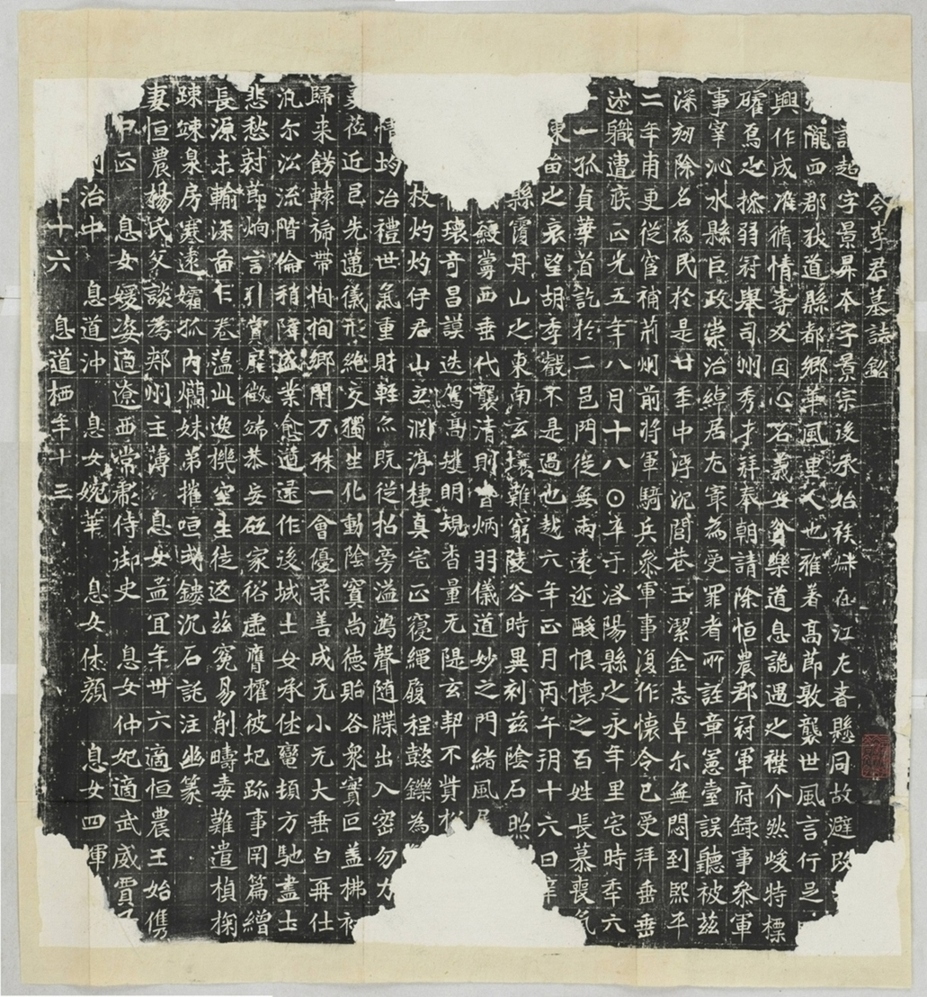 令李君墓誌銘
諱超字景昇本字景宗後承始族叔在江左者懸同故避改
隴西郡狄道縣都鄉華風里人也雅著高節敦襲世風言行足
興作成准循情孝友因心名義安貧樂道息詭遇之襟介然峻特標
確焉之操弱冠舉司州秀才拜奉朝請除恒農郡冠軍府録事參軍
事宰沁水縣巨政崇治綽居尤寀為受罪者所誣章憲臺誤聽被茲
深劾除名為民於是廿年中浮沉閭巷玉潔金志卓尔無悶到熙平
二年甫更從宦補荊州前將軍騎兵參軍事復作懷令已受拜垂垂
述職遭疾正光五年八月十八日卒于洛陽縣之永年里宅時年六
一孤貞華首訖於二邑門從無兩遠迩酸恨懷之百姓長慕喪氣
東苗之哀望胡季轂不是過也越六年正月丙午朔十六日
縣覆舟山之東南玄壤難窮陵谷時異刻茲陰石昭
綬黌西垂代襲清則音炳羽儀道妙之門緒風
瓌奇昌謨迭駕高䢖明規杳量无隄玄契不貲
枝灼灼伊君山立淵渟棲真宅正寢繩履程懿鑠為
均冶禮世氣重財輕尒既從拈旁溢鴻聲隨牒出入密勿
莅近邑先邁儀形絶交獨坐化動陰實尚德貽谷衆寳叵盖棐
歸来餝轅褫帶恂恂鄉閈万殊一會優柔善成无小无大垂白再仕
汎尔沿流階倫稍降盛業愈遒遠作後城士女承休鸞頓方馳盡士
悲愁封節炯言引賞扉徽娣恭妾砡家俗虛膺櫂彼圮跡事罔篇繒
長源未輸深茵乍卷薀此逸機空生徒返茲冤易削疇毒難遣楨榦
踈竦泉房寒遠孀孤内爛妹弟摧咺或鏤沉石託注幽篆
妻恒農楊氏父談為郟州主薄 息女孟宜年卅六適恒農王始儁
中正 息女媛姿適遼西常肅侍御史 息女仲妃適武威賈
治中 息道沖 息女婉華 息女休顔 息女四輝
十六 息道栖年十三